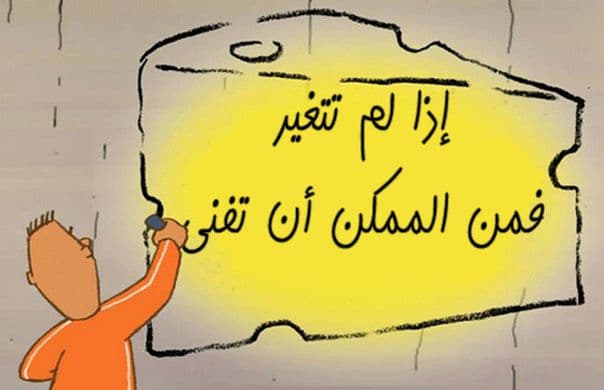 إذا لم تتغير
فمن الممكن أن تفنى